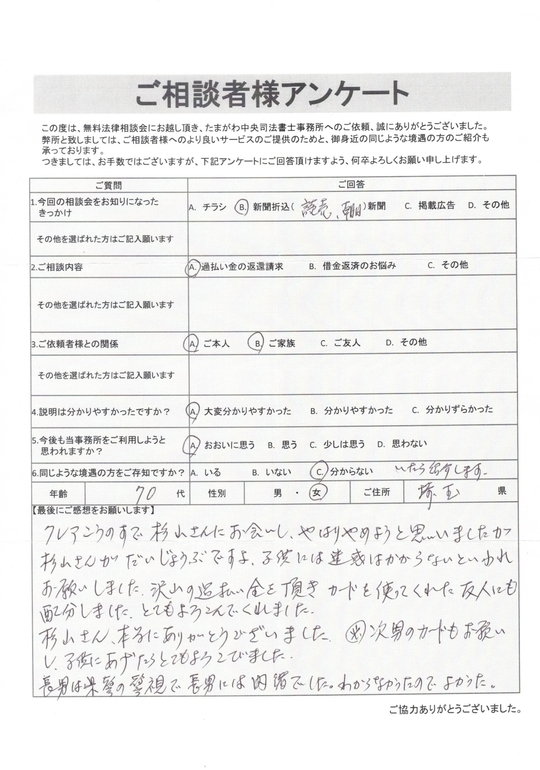 ご相談者様アンケート
この度は、無料法律相談会にお越し頂き、たまがわ中央司法書士事務所へのご依頼、誠にありがとうございました。
弊所と致しましては、ご相談者様へのより良いサービスのご提供のためと、御身近の同じような境遇の方のご紹介も
承っております。
つきましては、お手数ではございますが、下記アンケートにご回答頂けますよう、何卒よろしくお願い申し上げます。
ご質問 ご回答
1.今回の相談会をお知りになった
きっかけ
A. チラシ B. 新聞折込( 読売、朝日 )新聞 C. 掲載広告 D. その他
その他を選ばれた方はご記入願います
2.ご相談内容 A. 過払い金の返還請求 B. 借金返済のお悩み C. その他
その他を選ばれた方はご記入願います
3.ご依頼者様との関係 A. ご本人 B. ご家族 C. ご友人 D. その他
その他を選ばれた方はご記入願います
4.説明は分かりやすかったですか? A. 大変分かりやすかった B. 分かりやすかった C. 分かりずらかった
5.今後も当事務所をご利用しようと
思われますか?
A. おおいに思う B. 思う C. 少しは思う D. 思わない
6.同じような境遇の方をご存知ですか? A. いる B. いない C. 分からない いたら話します。
年齢 70 代 性別 男 ・ 女 ご住所 埼玉 県
【最後にご感想をお願いします】
クレアこうのすで杉山さんにお会いし、やはりやめようと思いましたが
杉山さんがだいじょうぶですよ、子供には迷惑はかからないといわれ
お願いしました、沢山の過払い金を頂きカードを使ってくれた友人にも
配分しました、とてもよろこんでくれました。
杉山さん、本当にありがとうございました、 次男のカードもお願い
し、子供にあげたらとてもよろこびました。
長男は県警の警視で長男には内緒でした。わからなかったのでよかった。
ご協力ありがとうございました。